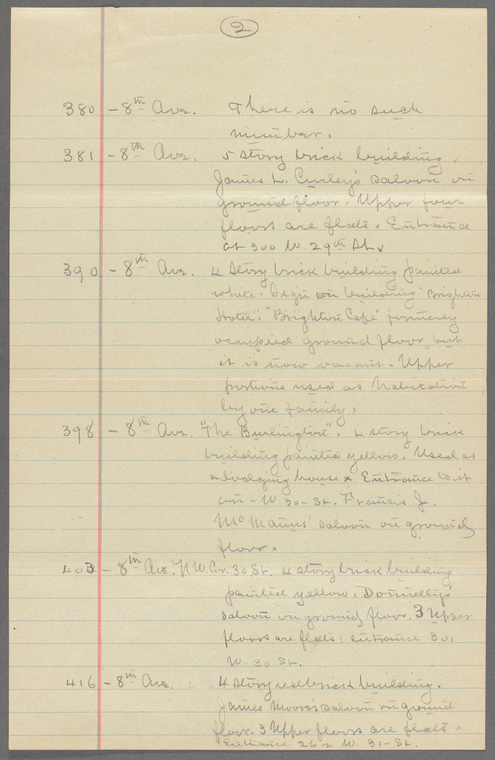 2
380 - 8th Ave. There is no such
number.
381 - 8th Ave. 5 story brick building.
James L. Curley's saloon on
ground floor. Upper four
floors are flats. Entrance
at 300 W. 29th St.
390 - 8th Ave. 4 story brick building painted
white. Sign on building "Brighton
Hotel". "Brighton Cafe" formerly
occupied ground floor, but
it is now vacant. Upper
portions used as habitation
by one family.
398 - 8th Ave. "The Burlington". 4 story brick
building painted yellow. Used as
a lodging house & Entrance to it
on - W. 30 - St. Francis J.
McManus' saloon on ground
floor.
403 - 8th Ave. N.W. Cr. 30 St. 4 story brick building
painted yellow. Donnelly's
saloon on ground floor. 3 Upper
floors are flats: entrance 301
W. 30 St.
416 - 8th Ave. 4 story red brick building.
James Moore's saloon on ground
floor. 3 Upper floors are flats.
Entrance 262 W. 31 - St.